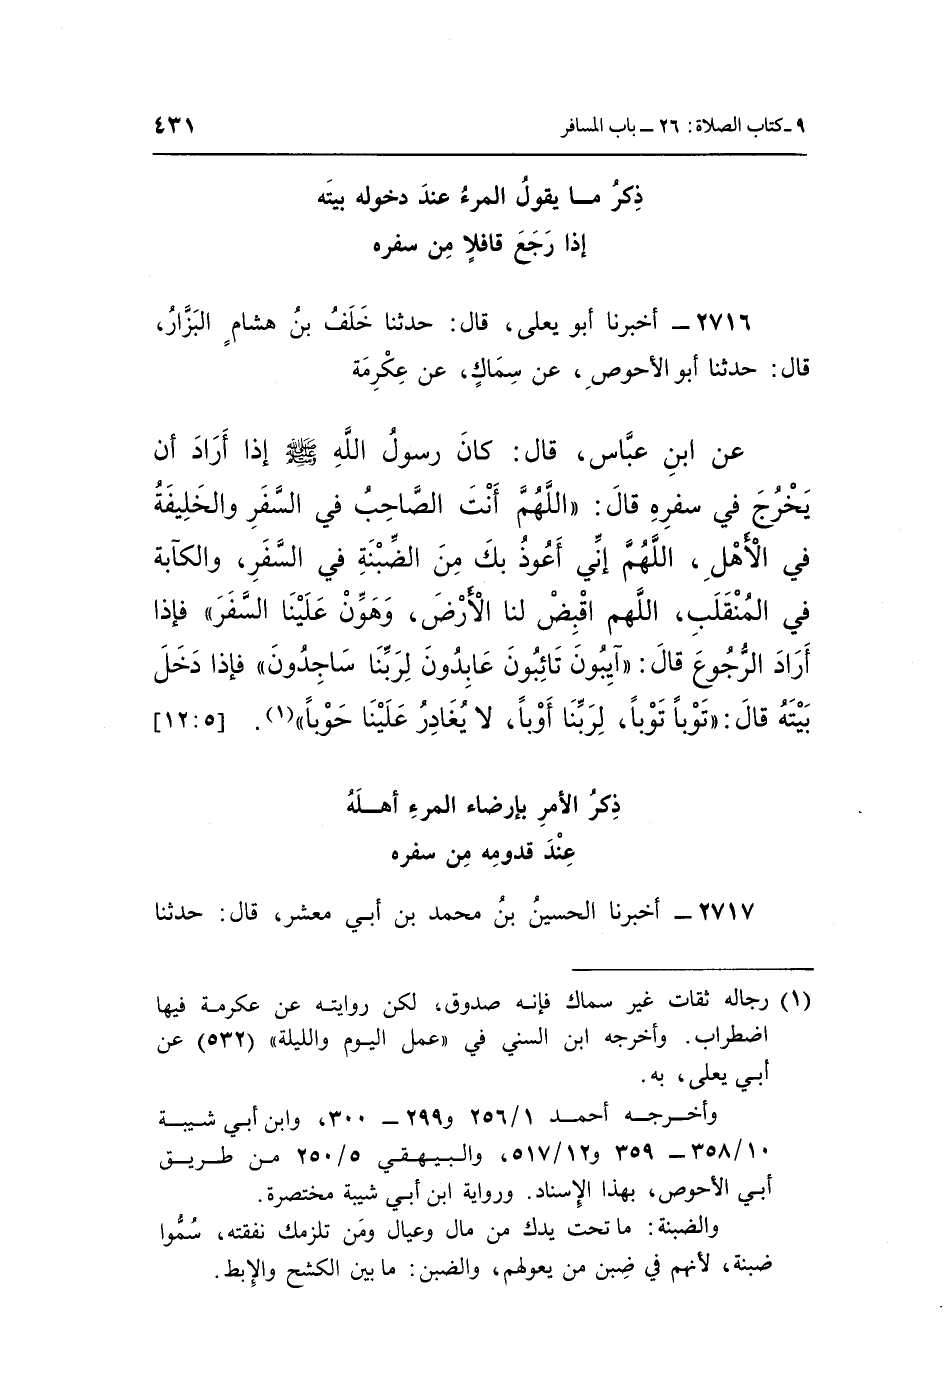 ٩ ـ كتاب الصلاة: ٢٦ ــ باب المسافر ٤٣١
ذِكرُ مــا يقولُ المرءُ عندَ دخوله بيتَه
إذا رَجَعَ قافلاً مِن سفره
٢٧١٦ ــ أخبرنا أبو يعلى، قال: حدثنا خَلَفُ بنُ هشامٍ البَزَّارُ،
قال: حدثنا أبو الأحوصِ، عن سِمَاكٍ، عن عِكْرِمَة
عن ابنِ عبَّاس، قال: كانَ رسولُ اللَّهِ ﷺ إذا أَرَادَ أن
يَخْرُجَ في سفرِهِ قالَ: «اللَّهُمَّ أَنْتَ الصَّاحِبُ في السَّفَرِ والخَلِيفَةُ
في الْأَهْلِ، اللَّهُمَّ إنِّي أَعُوذُ بكَ مِنَ الضِّبْنَةِ في السَّفَرِ، والكآبة
في المُنْقَلَبِ، اللَّهم اقْبِضْ لنا الْأَرْضَ، وَهَوِّنْ عَلَيْنَا السَّفَرَ» فإذا
أَرَادَ الرُّجُوعَ قالَ: «آيِبُونَ تَائِبُونَ عَابِدُونَ لِرَبِّنَا سَاجِدُونَ» فإذا دَخَلَ
بَيْتَهُ قالَ: «تَوْباً تَوْباً، لِرَبِّنَا أَوْباً، لا يُغَادِرُ عَلَيْنَا حَوْباً»(١). [١٢:٥]
ذِكرُ الأمرِ بإرضاء المرءِ أهــلَهُ
عِنْدَ قدومِه مِن سفره
٢٧١٧ ــ أخبرنا الحسينُ بنُ محمد بن أبي معشر، قال: حدثنا
(١) رجاله ثقات غير سماك فإنه صدوق، لكن روايته عن عكرمة فيها
اضطراب. وأخرجه ابن السني في «عمل اليوم والليلة» (٥٣٢) عن
أبي يعلى، به.
وأخرجه أحمد ٢٥٦/١ و٢٩٩ ــ ٣٠٠، وابن أبي شيبة
٣٥٨/١٠ ــ ٣٥٩ و٥١٧/١٢، والبيهقي ٢٥٠/٥ من طريق
أبي الأحوص، بهذا الإسناد. ورواية ابن أبي شيبة مختصرة.
والضبنة: ما تحت يدك من مال وعيال ومَن تلزمك نفقته، سُمُّوا
ضبنة، لأنهم في ضِبن من يعولهم، والضبن: ما بين الكشح والإبط.